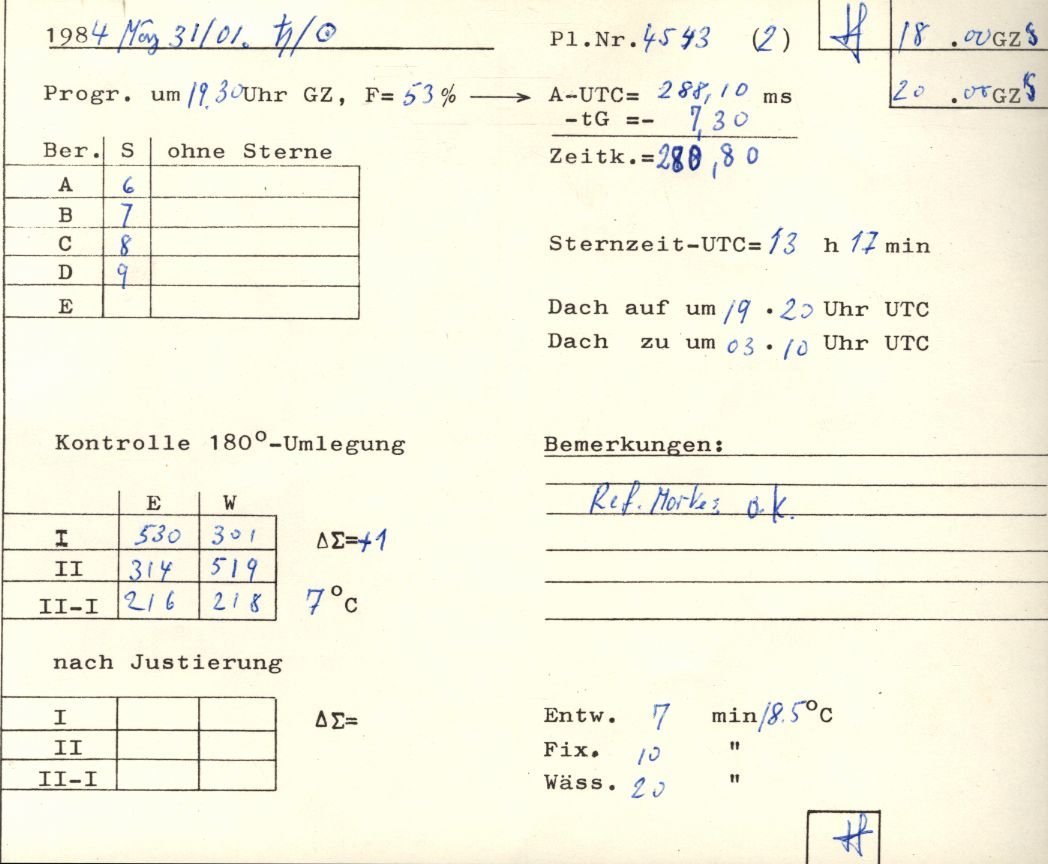 1984 März 31/01. ♄/☉ Pl.Nr. 4543 (2) 18 .00 GZ S
Progr. um 19.30 Uhr GZ, F= 53 % → A-UTC= 288,10 ms 20 .00 GZ S
-tG =- 7,30
Zeitk.= 280,80
Ber. S ohne Sterne
A 6
B 7
C 8
D 9
E
Sternzeit-UTC= 13 h 17 min
Dach auf um 19 . 20 Uhr UTC
Dach zu um 03 . 10 Uhr UTC
Kontrolle 180°-Umlegung
E W
I 530 301 ΔΣ=+1
II 314 519
II-I 216 218 7 °C
Bemerkungen:
Ref. Morkes o.k.
nach Justierung
I ΔΣ=
II
II-I
Entw. 7 min 18.5°C
Fix. 10 "
Wäss. 20 "